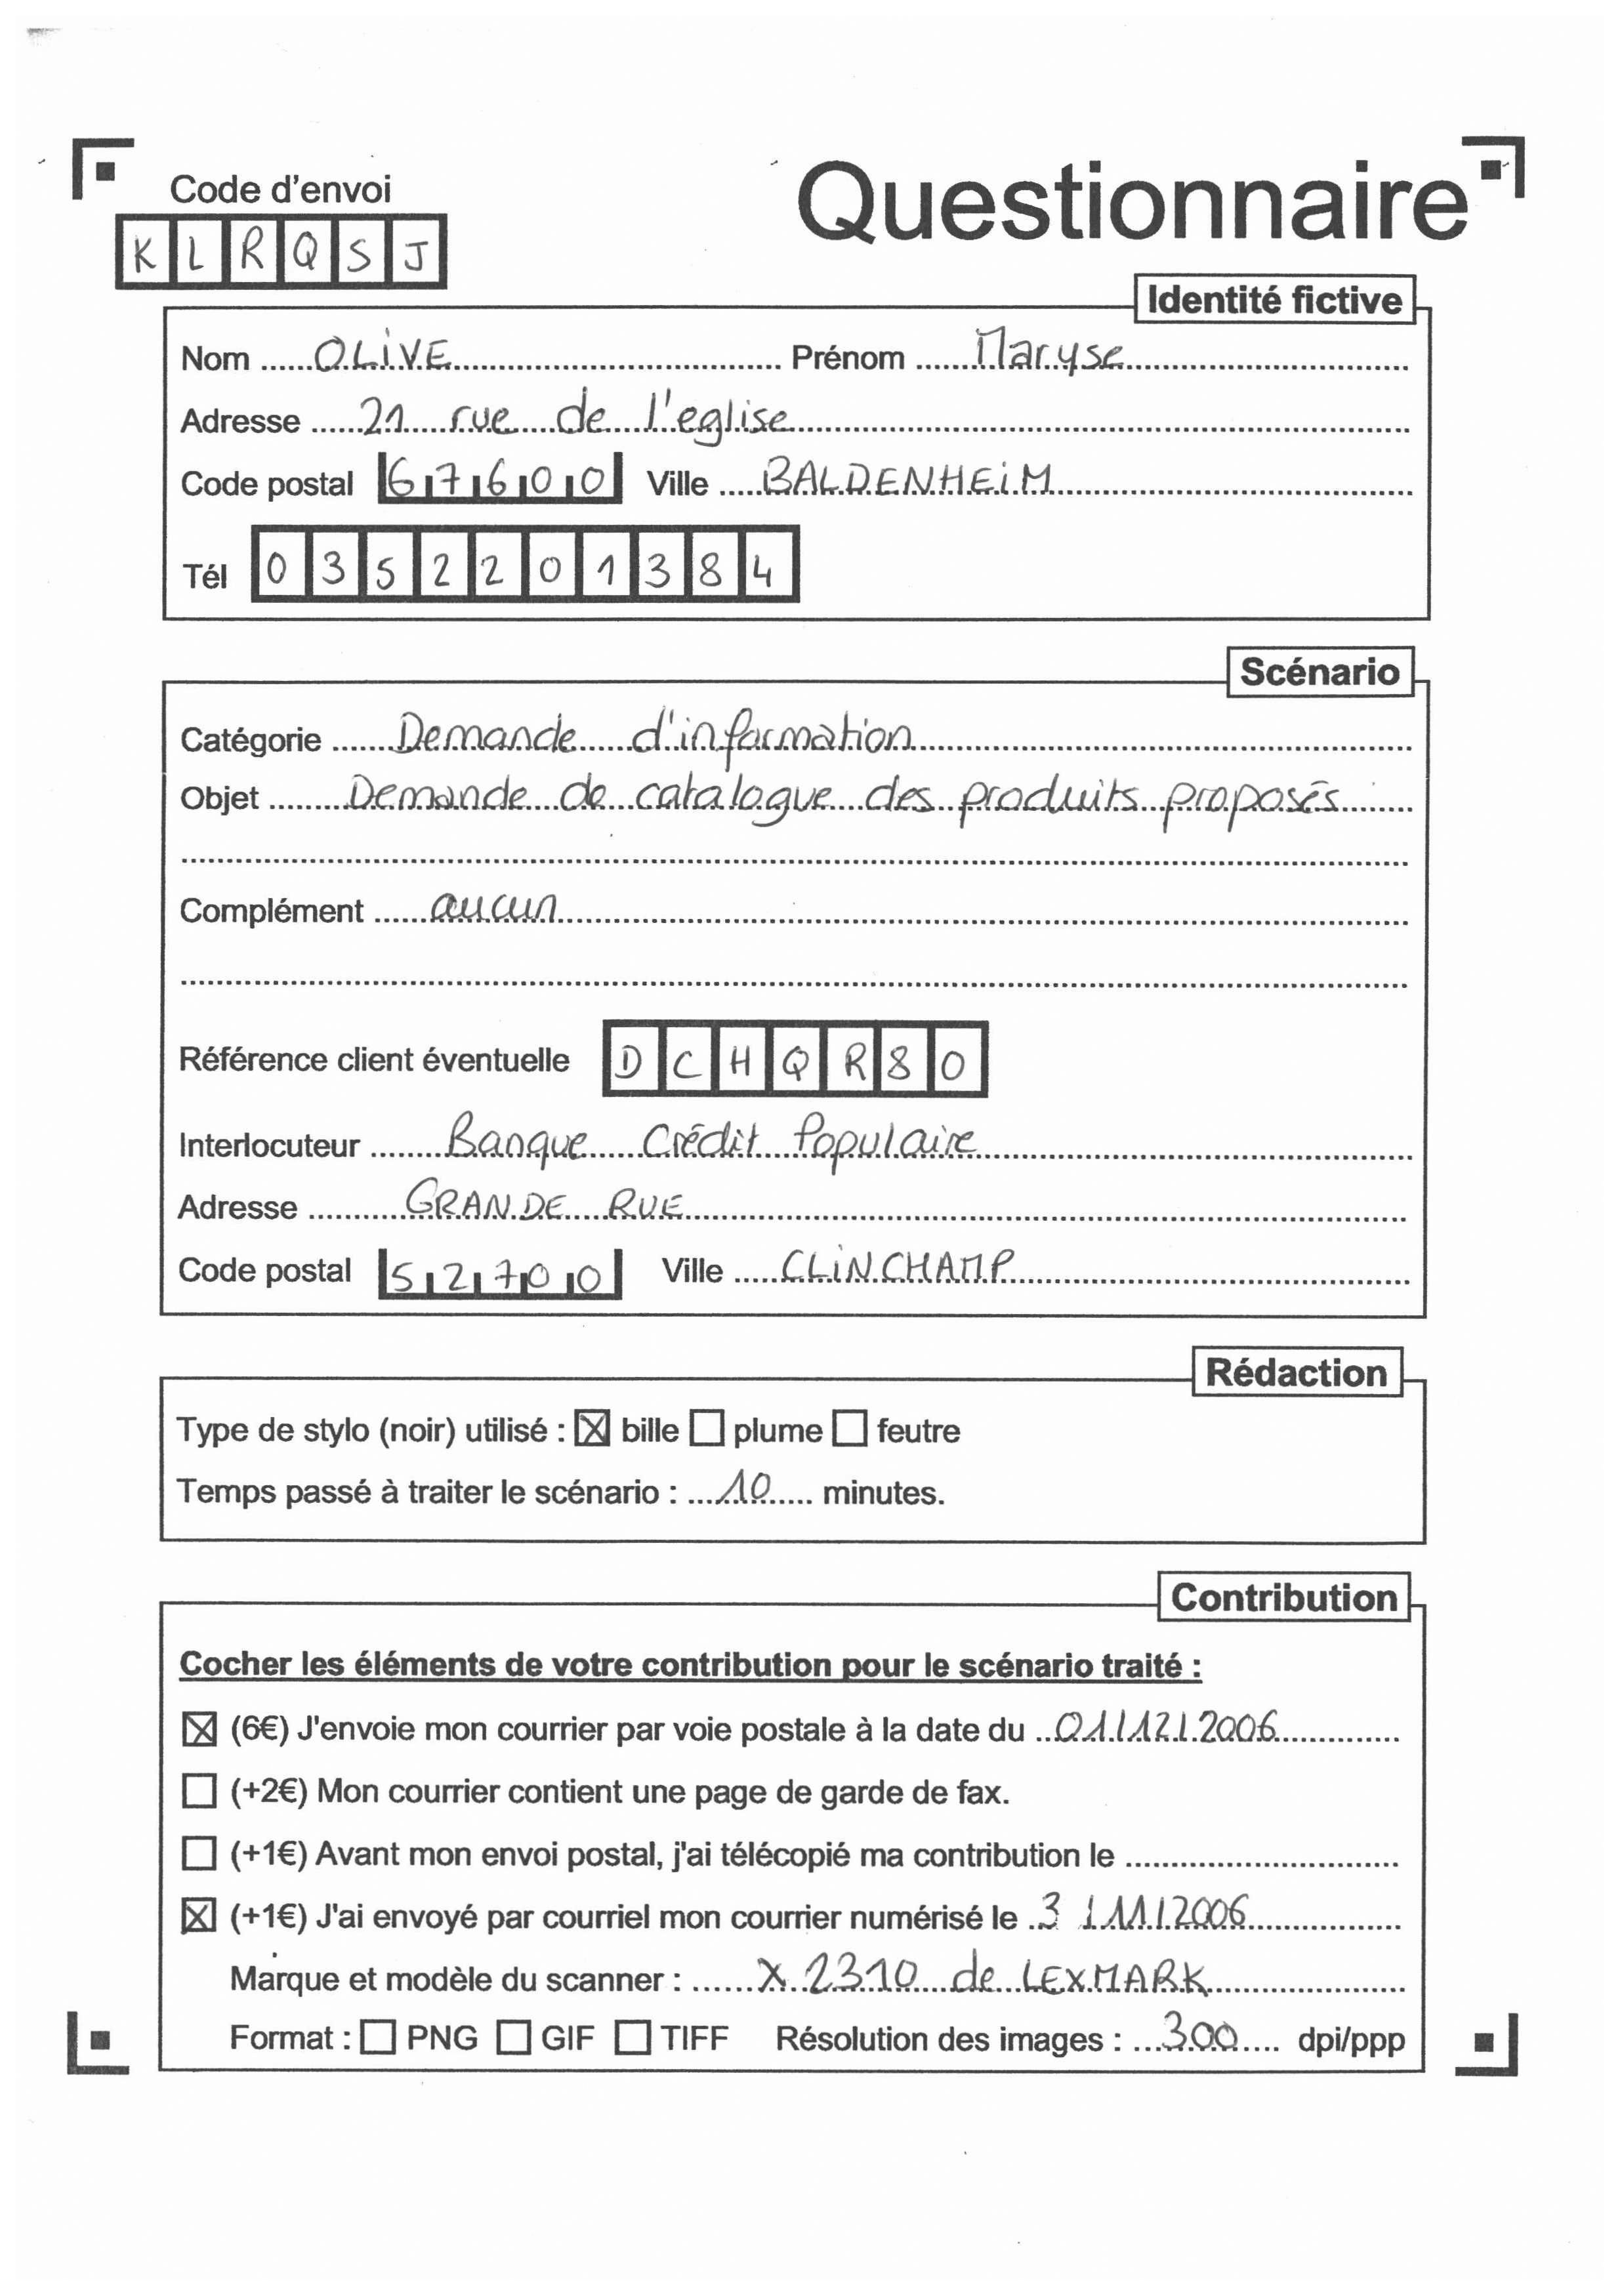 Code d'envoi
Questionnaire
K L R Q S J
Identité fictive
Nom ...... OLIVE ...... Prénom ...... Maryse ......
Adresse ...... 21 rue de l'eglise ......
Code postal 67600 Ville ..... BALDENHEIM .....
Tél 0 3 5 2 2 0 1 3 8 4
Scénario
Catégorie ....... Demande d'information .......
Objet ........ Demande de catalogue des produits proposés ........
Complément ...... aucun ......
Référence client éventuelle D C H Q R 8 0
Interlocuteur ........ Banque Crédit Populaire ........
Adresse ........... GRANDE RUE ...........
Code postal 52700 Ville ..... CLINCHAMP .....
Rédaction
Type de stylo (noir) utilisé : ☒ bille ☐ plume ☐ feutre
Temps passé à traiter le scénario : ... 10 ... minutes.
Contribution
Cocher les éléments de votre contribution pour le scénario traité :
☒ (6€) J'envoie mon courrier par voie postale à la date du .. 01/12/2006 ..
☐ (+2€) Mon courrier contient une page de garde de fax.
☐ (+1€) Avant mon envoi postal, j'ai télécopié ma contribution le ..............
☒ (+1€) J'ai envoyé par courriel mon courrier numérisé le . 3 /11/2006 .
Marque et modèle du scanner : ...... X 2310 de LEXMARK ......
Format : ☐ PNG ☐ GIF ☐ TIFF Résolution des images : ... 300 .... dpi/ppp